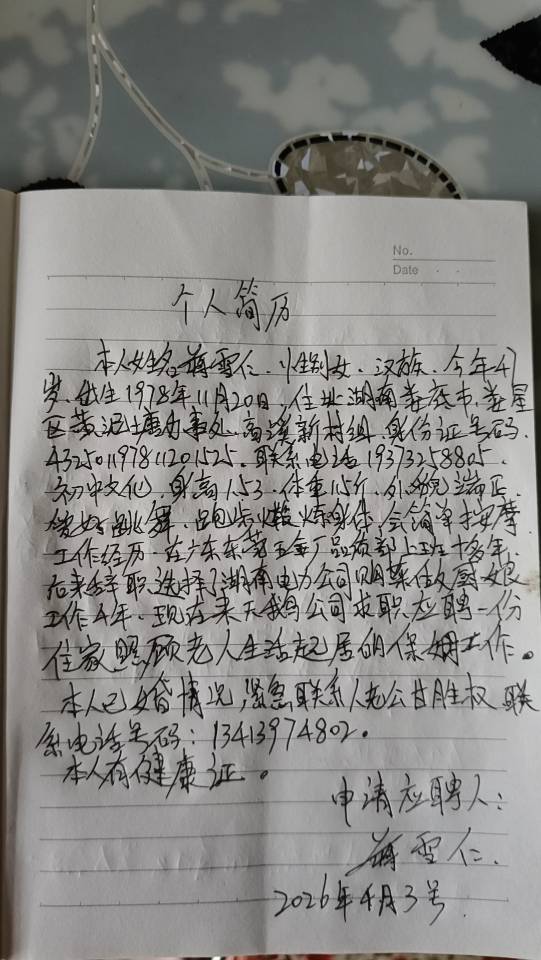 No.
Date
个人简历
本人姓名蒋雪仁、性别女、汉族、今年47
岁、出生1978年11月20日,住址湖南娄底市、娄星
区黄泥塘办事处、高溪新村组、身份证号码、
432501197811201525、联系电话19373258805、
初中文化、身高1.53、体重115斤、外貌端正、
爱好跳舞、跑步火锻炼身体、会简单按摩
工作经历、在广东东莞五金厂品质部上班十多年、
后来辞职选择了湖南电力公司购菜做厨娘
工作4年、现在来天鹅公司求职应聘一份
住家照顾老人生活起居的保姆工作。
本人已婚情况,紧急联系人老公甘胜权 联
系电话号码:13413974802。
本人有健康证。
申请应聘人:
蒋雪仁.
2026年4月3号